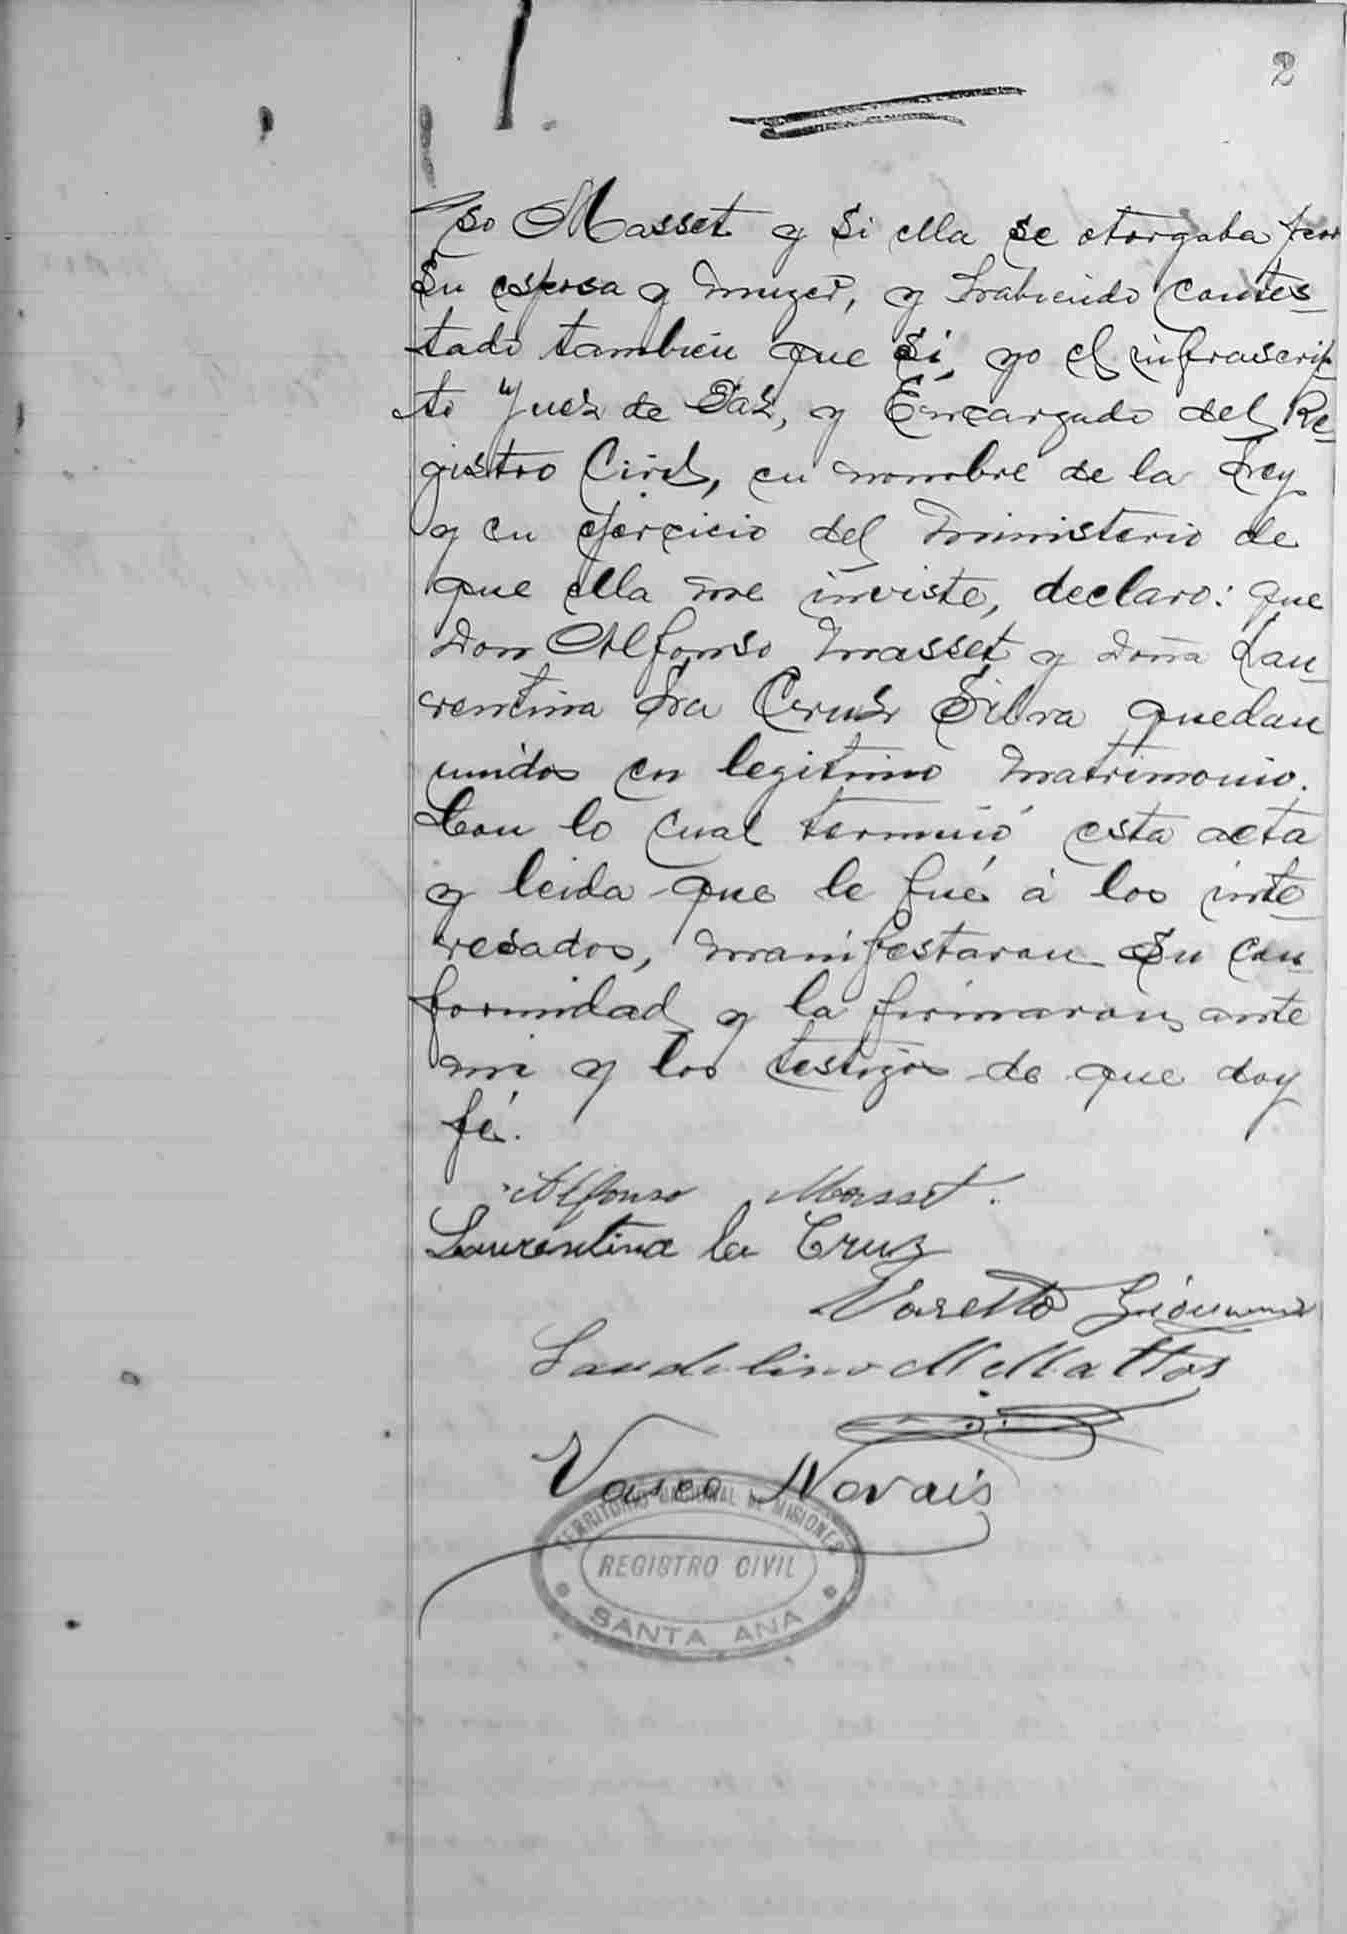 2
so Masset y si ella se otorgaba por
su esposa y muger, y habiendo contes-
tado tambien que si, yo el infrascrip-
to Juez de Paz, y Encargado del Re-
gistro Civil, en nombre de la Ley
y en ejercicio del ministerio de
que ella me inviste, declaro: que
don Alfonso Masset y doña Lau-
rentina La Cruz Silva quedan
unidos en legitimo matrimonio.
Con lo cual terminó esta acta
y leida que le fué á los inte-
resados, manifestaron su con-
formidad y la firmaron ante
mi y los testigos de que doy
fé.
Alfonso Masset.
Laurentina la Cruz
Varetto
Laudelino M Mattos
Vasco Novais
TERRITORIO NACIONAL DE MISIONES
REGISTRO CIVIL
SANTA ANA